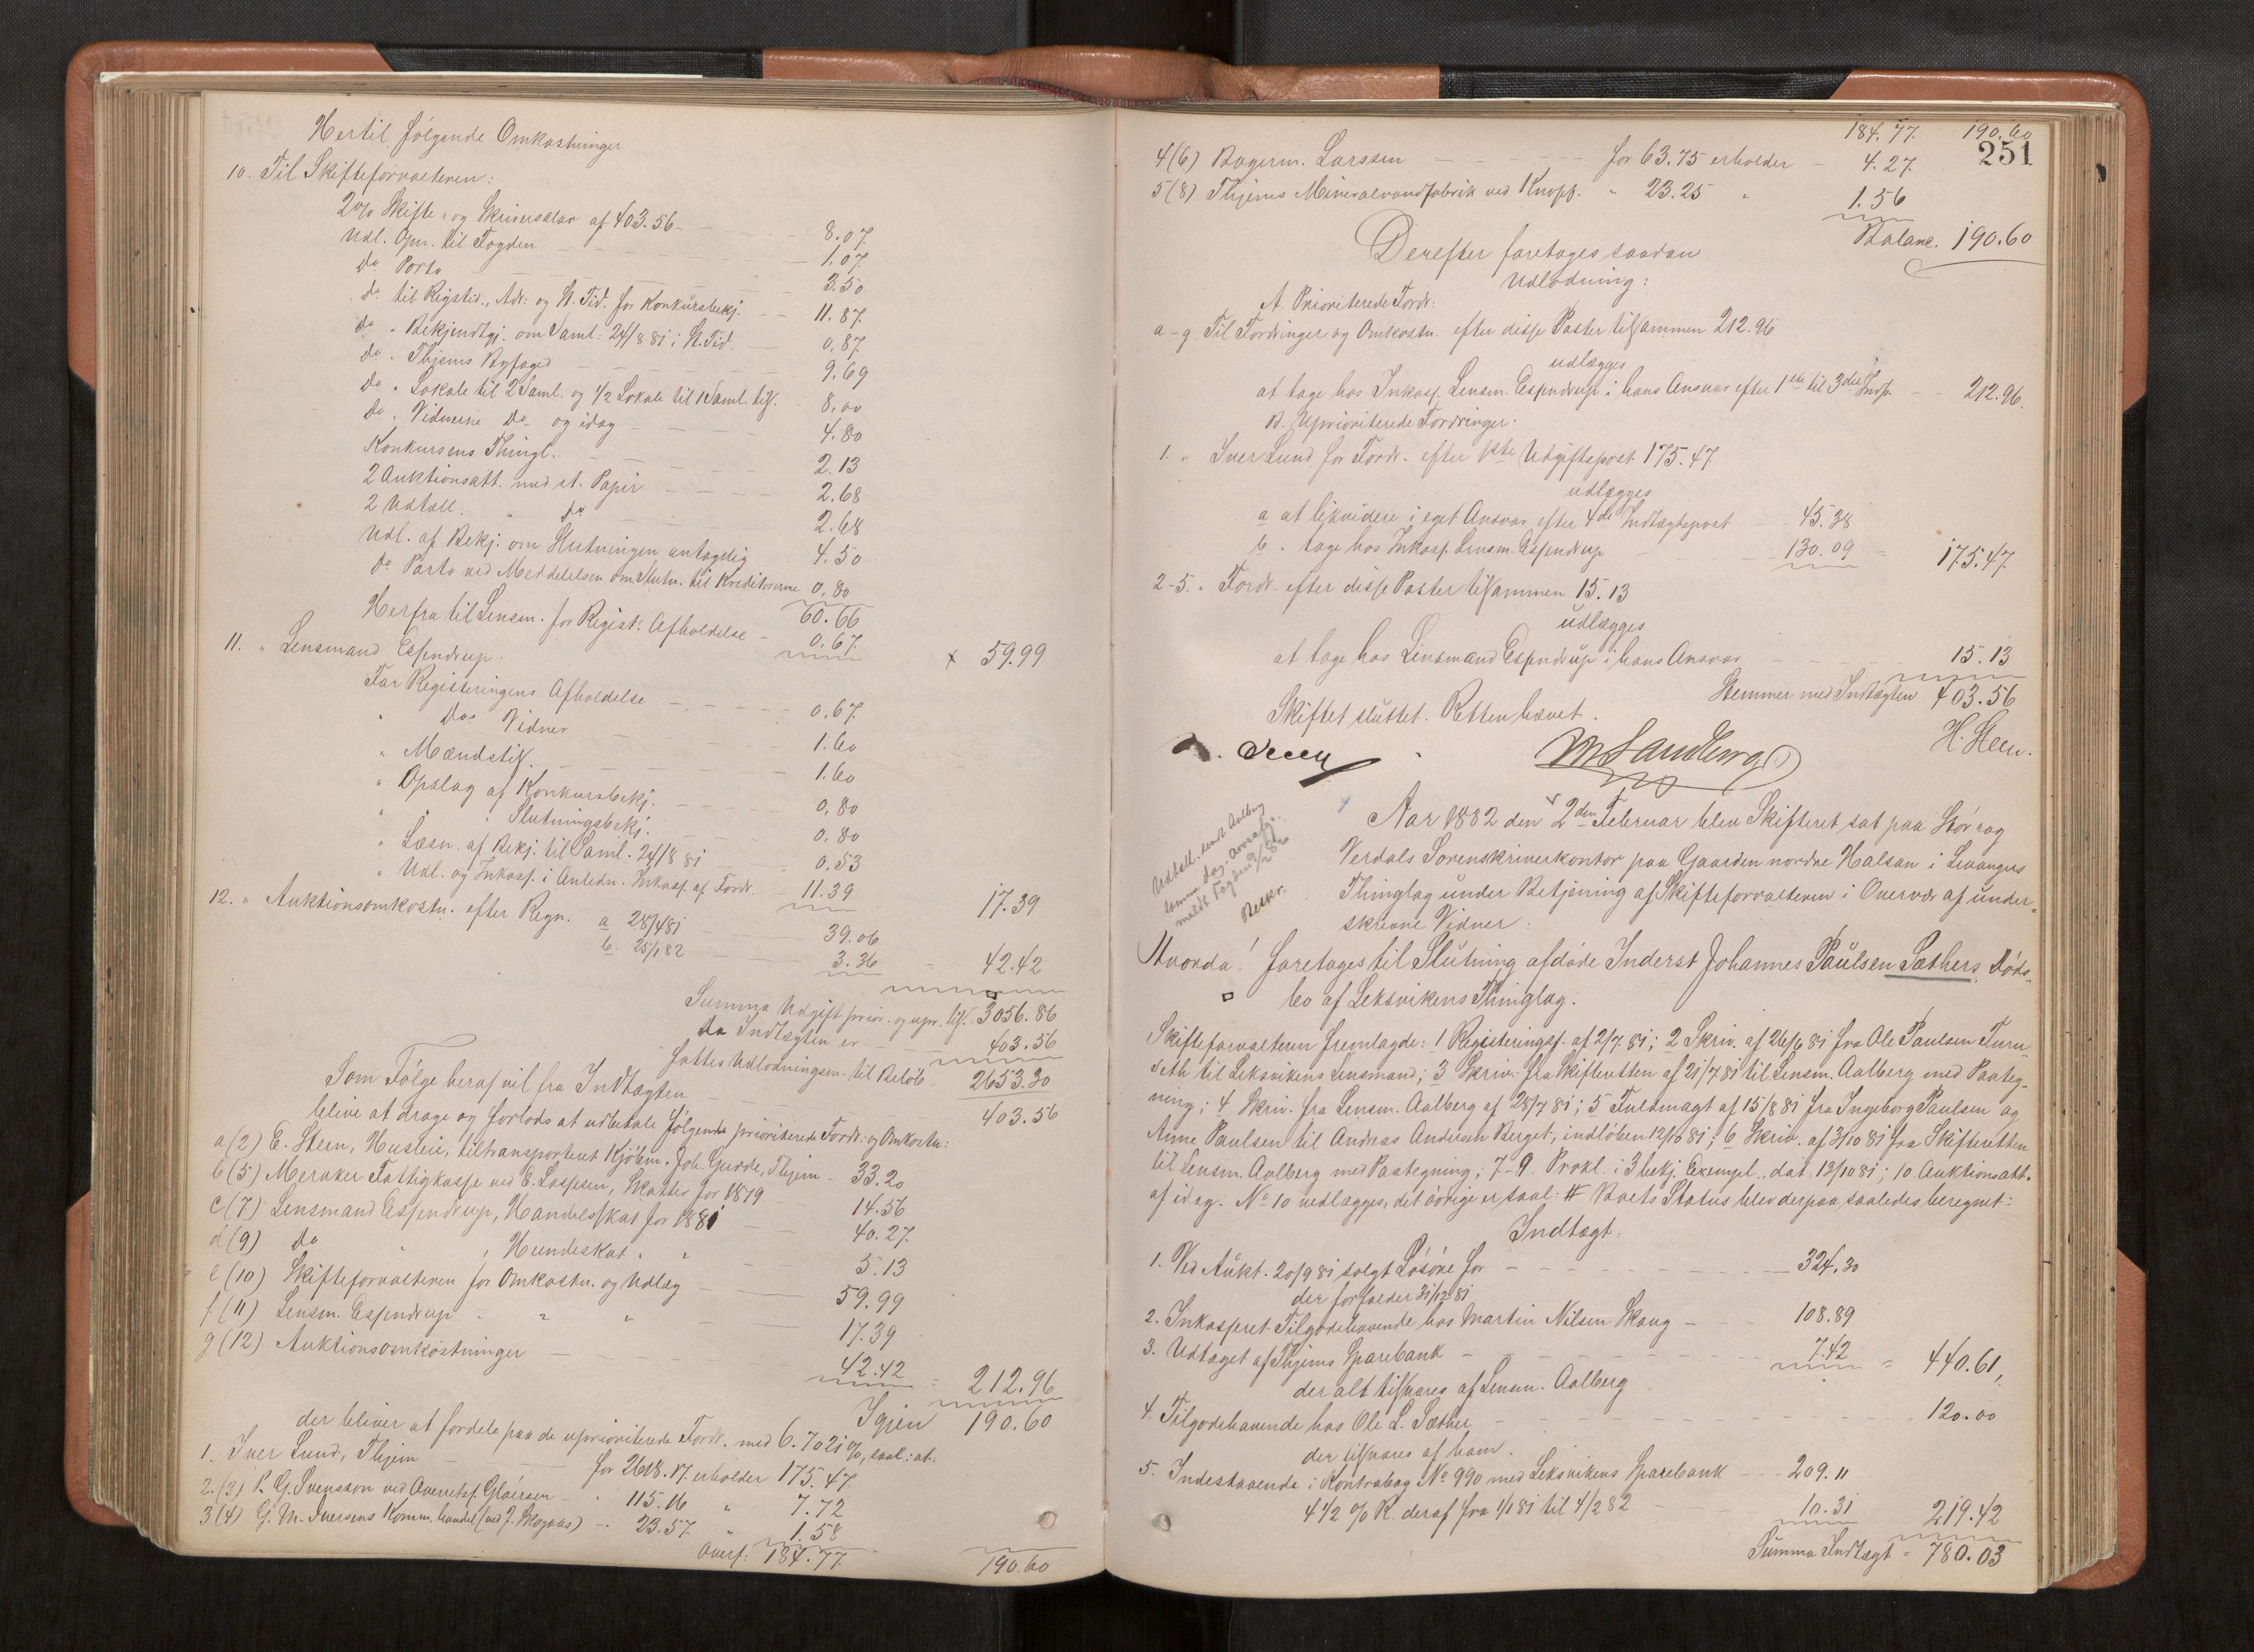 Hertil følgende Omkostninger
10. Til Skifteforvalteren:
2% Skifte- og Skriversalær af 403.56 - 8.07.
Udl. Opr. til Fogden 1.07.
Do Porto 3.50
Do til Rigstid., Adr: og N. Tid. for Konkursbekj. 11.87.
Do " Bekjendtgj. om Saml: 24/8 81 i N. Tid. 0,87.
Do " Thjems Byfoged 9.69
Do " Lokale til 2 Saml. og 1/2 Lokale til 1 Saml. tils. 8,00
Do " Vidnerne Do og idag 4.80
Konkursens Thingl. 2.13
2 Auktionsatt. med st. Papir 2.68
2 Udtall. " Do 2.68
Udl. af Bekj. om Slutningen antagelig 4.50
Do Porto ved Meddelelsen om Slutn. til Kreditorerne 0,80
60.66
Herfra til Lensm. for Regist: Afholdelse - 0.67. x 59.99
11. " Lensmand Espendrup.
For Registeringens Afholdelse 0.67.
" Dos Vidner 1.60
" Mændstil. 1.60
" Opslag af Konkursbekj. 0,80
" " Slutningsbekj. 0.80
" Læsn. af Bekj. til Saml. 24/8 81 0.53
" Udl. og Inkass. i Anledn. Inkass. af Fordr. - 11.39 17.39
12. " Auktionsomkostn. efter Regn. a 28/4 81 39.06
b. 25/1 82 3.36 - 42.42
Summa Udgift prior. og upr. tils. 3056.86
Da Indtægten er 403.56
fattes Udlodningsm. til Beløb 2653.30
Som Følge heraf vil fra Indtægten 403.56
blive at drage og forlods at udbetale følgende prioriterede Fordr: og Omkostn:
a (2) E. Steen, Husleie, tiltransporteret Kjøbm. Joh. Gjærde, Thjem - 33.20
b (5) Meraker Fattigkasse ved E. Kaspersen, Skatter for 1879 14.56
c (7) Lensmand Espendrup, Handelsskat for 1881 40.27.
d (9) do " , Hundeskat " " 5.13
e (10) Skifteforvalteren for Omkostn. og Udlæg 59.99
f (11) Lensm. Espendrup " " " 17.39
g (12) Auktionsomkostninger 42.42 = 212.96
Igjen 190.60
der bliver at fordele paa de uprioriterede Fordr. med 6.7021 %, saal: at.
1. Iver Lund, Thjem for 2618.17. erholder 175.47.
2. (3) P. G. Svensson ved Overretsf. Gløersen - " 115.16 " 7.72
3 (4) G. M. Iversens Komm. handel (ved J. Skogaas) - " 23.57. " 1.58
Overf: 184.77. 190.60
251
184.77. 190.60
4 (6) Bagerm. Larssen for 63.75 erholder 4.27.
5 (8) Thjems Mineralvandfabrik ved Knoph. " 23.25 " 1.56
Balanc. 190.60
Derefter foretages saadan
Udlodning:
A. Prioriterede Fordr:
a - g. Til Fordringer og Omkostn. efter disse Poster tilsammen 212.96
udlægges
at tage hos Inkass. Lensm. Espendrup i hans Ansvar efter 1ste til 3die Indt. 212.96.
B. Uprioriterede Fordringer:
1. " Iver Lund for Fordr. efter 1ste Udgiftspost 175.47.
udlægges
a at likvidere i eget Ansvar efter 4de Indtægtspost 45.38
b. " tage hos Inkass. Lensm. Espendrup 130.09 = 175.47.
2-5. " Fordr. efter disse Poster tilsammen 15.13
udlægges
at tage hos Linsmand Espendrup i hans Ansvar 15.13
Stemmer med Indtægten 403.56
Skiftet sluttet. Retten hævet.
H. Steen.
M Sandberg
Udtall. sendt Aalberg
samme Dag.
meldt Fogden 9/2 82
Beskr.
Aar 1882 den 2den Februar blev Skifteret sat paa Stør- og
Verdals Sorenskriverkontor paa Gaarden nordre Halsan i Levangers
Thinglag under Betjening af Skifteforvalteren i Overvær af under-
skrevne Vidner:
Hvorda! foretages til Slutning afdøde Inderst Johannes Paulsen Sæthers Døds-
bo af Leksvikens Thinglag.
Skifteforvalteren fremlagde: 1 Registeringsf. af 2/7 81; 2 Skriv. af 26/6 81 fra Ole Paulsen Turn-
seth til Leksvikens Lensmand; 3 Skriv. fra Skifteretten af 21/7 81 til Lensm. Aalberg med Paateg-
ning; 4 Skriv. fra Lensm. Aalberg af 28/7 81; 5 Fuldmagt af 15/8 81 fra Ingeborg Paulsen og
Anne Paulsen til Andreas Andersen Berget, indløben 12/10 81; 6 Skriv. af 3/10 81 fra Skifteretten
til Lensm. Aalberg med Paategning; 7-9. Prokl. i 3 bekj. Exempl., dat. 13/10 81; 10. Auktionsatt.
af idag. No 10 vedlægges, det øvrige er saal: # Boets Status blev derpaa saaledes beregnet:
Indtægt:
1. Ved Aukt. 20/9 81 solgt Løsøre for 324.30
der forfalder 31/12 81
2. Inkasseret Tilgodehavende hos Martin Nilsen Skaug 108.89
3. Udtaget af Thjems Sparebank 7.42 = 440.61,
der alt tilsvares af Lensm. Aalberg
4. Tilgodehavende hos Ole L. Sæther 120.00
der tilsvares af ham.
5. Indestaaende i Kontrabog No 990 med Leksvikens Sparebank 209.11
4 1/2 % R. deraf fra 1/1 81 til 4/2 82 10.31 219.42
Summa Indtægt = 780.03